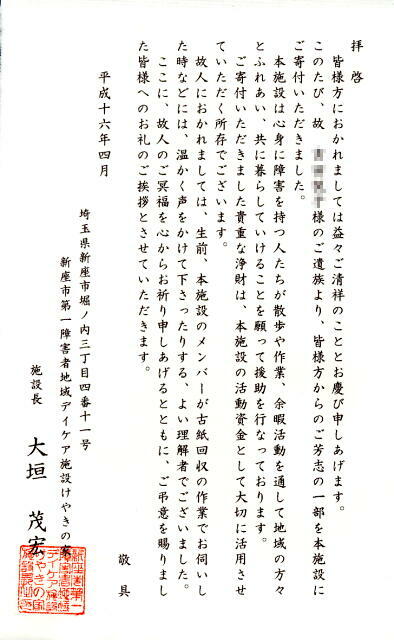 拝啓
皆様方におかれましては益々ご清祥のこととお慶び申しあげます。
このたび、故 様のご遺族より、皆様方からのご芳志の一部を本施設に
ご寄付いただきました。
本施設は心身に障害を持つ人たちが散歩や作業、余暇活動を通して地域の方々
とふれあい、共に暮らしていけることを願って援助を行なっております。
ご寄付いただきました貴重な浄財は、本施設の活動資金として大切に活用させ
ていただく所存でございます。
故人におかれましては、生前、本施設のメンバーが古紙回収の作業でお伺いし
た時などには、温かく声をかけて下さったりする、よい理解者でございました。
ここに、故人のご冥福を心からお祈り申しあげるとともに、ご弔意を賜りまし
た皆様へのお礼のご挨拶とさせていただきます。
敬具
平成十六年四月
埼玉県新座市堀ノ内三丁目四番十一号
新座市第一障害者地域デイケア施設けやきの家
施設長 大垣 茂宏
新座市第一
障害者地域
デイケア施設
けやきの家